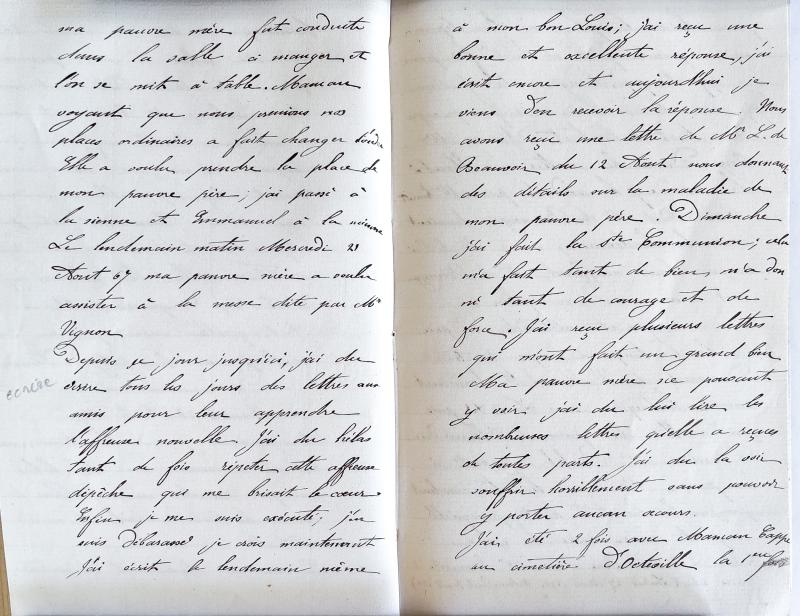 ma pauvre mère fut conduite
dans la salle à manger et
l'on se mit à table. Maman
voyant que nous prenions nos
places ordinaires a fait changer
Elle a voulu prendre la place de
mon pauvre père; j'ai passé à
la sienne et Emmanuel à la mienne
Le lendemain matin Mercredi 21
Aout 67 ma pauvre mère a voulu
assister à la messe dite par Mr
Vignon
Depuis ce jour jusqu'ici, j'ai du
écrire
écrire tous les jours des lettres aux
amis pour leur apprendre
l'affreuse nouvelle J'ai du hélas
tant de fois répeter cette affreuse
dépêche qui me brisait le cœur.
Enfin je me suis exécuté; j'en
suis Débarassé je crois maintenant
J'ai écrit le lendemain même
à mon bon Louis; j'ai reçu une
bonne et excellente réponse, j'ai
écrit encore et aujourd'hui je
viens d'en recevoir la réponse. Nous
avons reçu une lettre de Mr L. de
Beauvoir du 12 Aout nous donnant
des détails sur la maladie de
mon pauvre père. Dimanche
j'ai fait la Ste Communion; cela
m'a fait tant de bien, m'a don
né tant de courage et de
force. J'ai reçu plusieurs lettres
qui m'ont fait un grand bien
Ma pauvre mère ne pouvant
y voir j'ai du lui lire les
nombreuses lettres qu'elle a reçues
de toutes parts. J'ai du la voir
souffrir horriblement sans pouvoir
y porter aucun secours.
J'ai été 2 fois avec Maman Cappe
au cimetière D'Octeville la 1ere fois